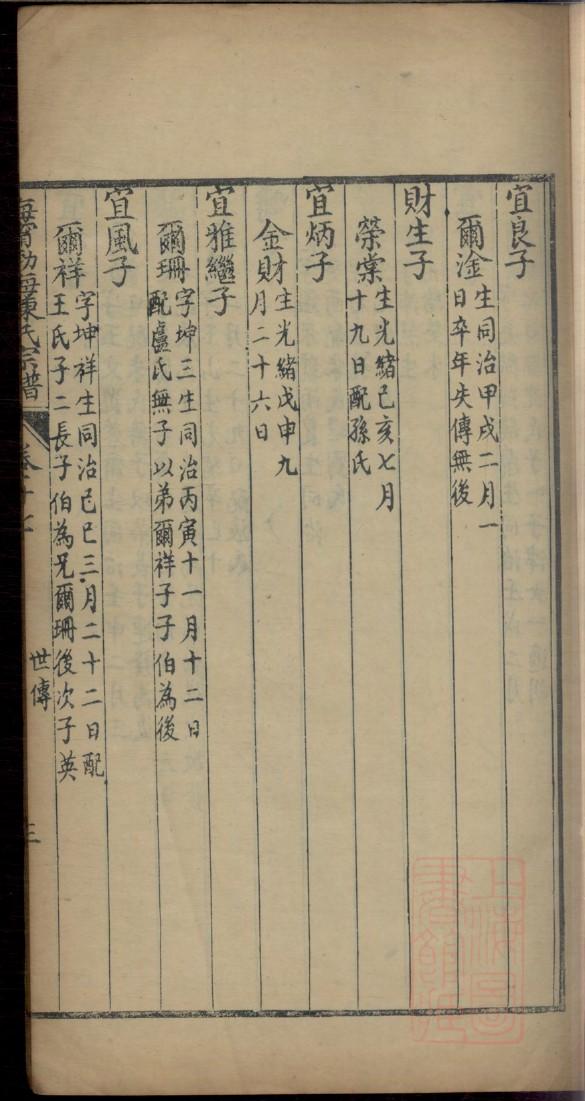 宜良子
爾淦
生同治甲戌二月一
日卒年失傳無後
財生子
榮棠
生光緒己亥七月
十九日配孫氏
宜炳子
金財
生光緒戊申九
月二十六日
宜雅繼子
爾珊
字坤三生同治丙寅十一月十二日
配盧氏無子以弟爾祥子子伯為後
宜風子
爾祥
字坤祥生同治己巳三月二十二日配
王氏子二長子伯為兄爾珊後次子英
氏宗譜
世傳
上海圖書館藏